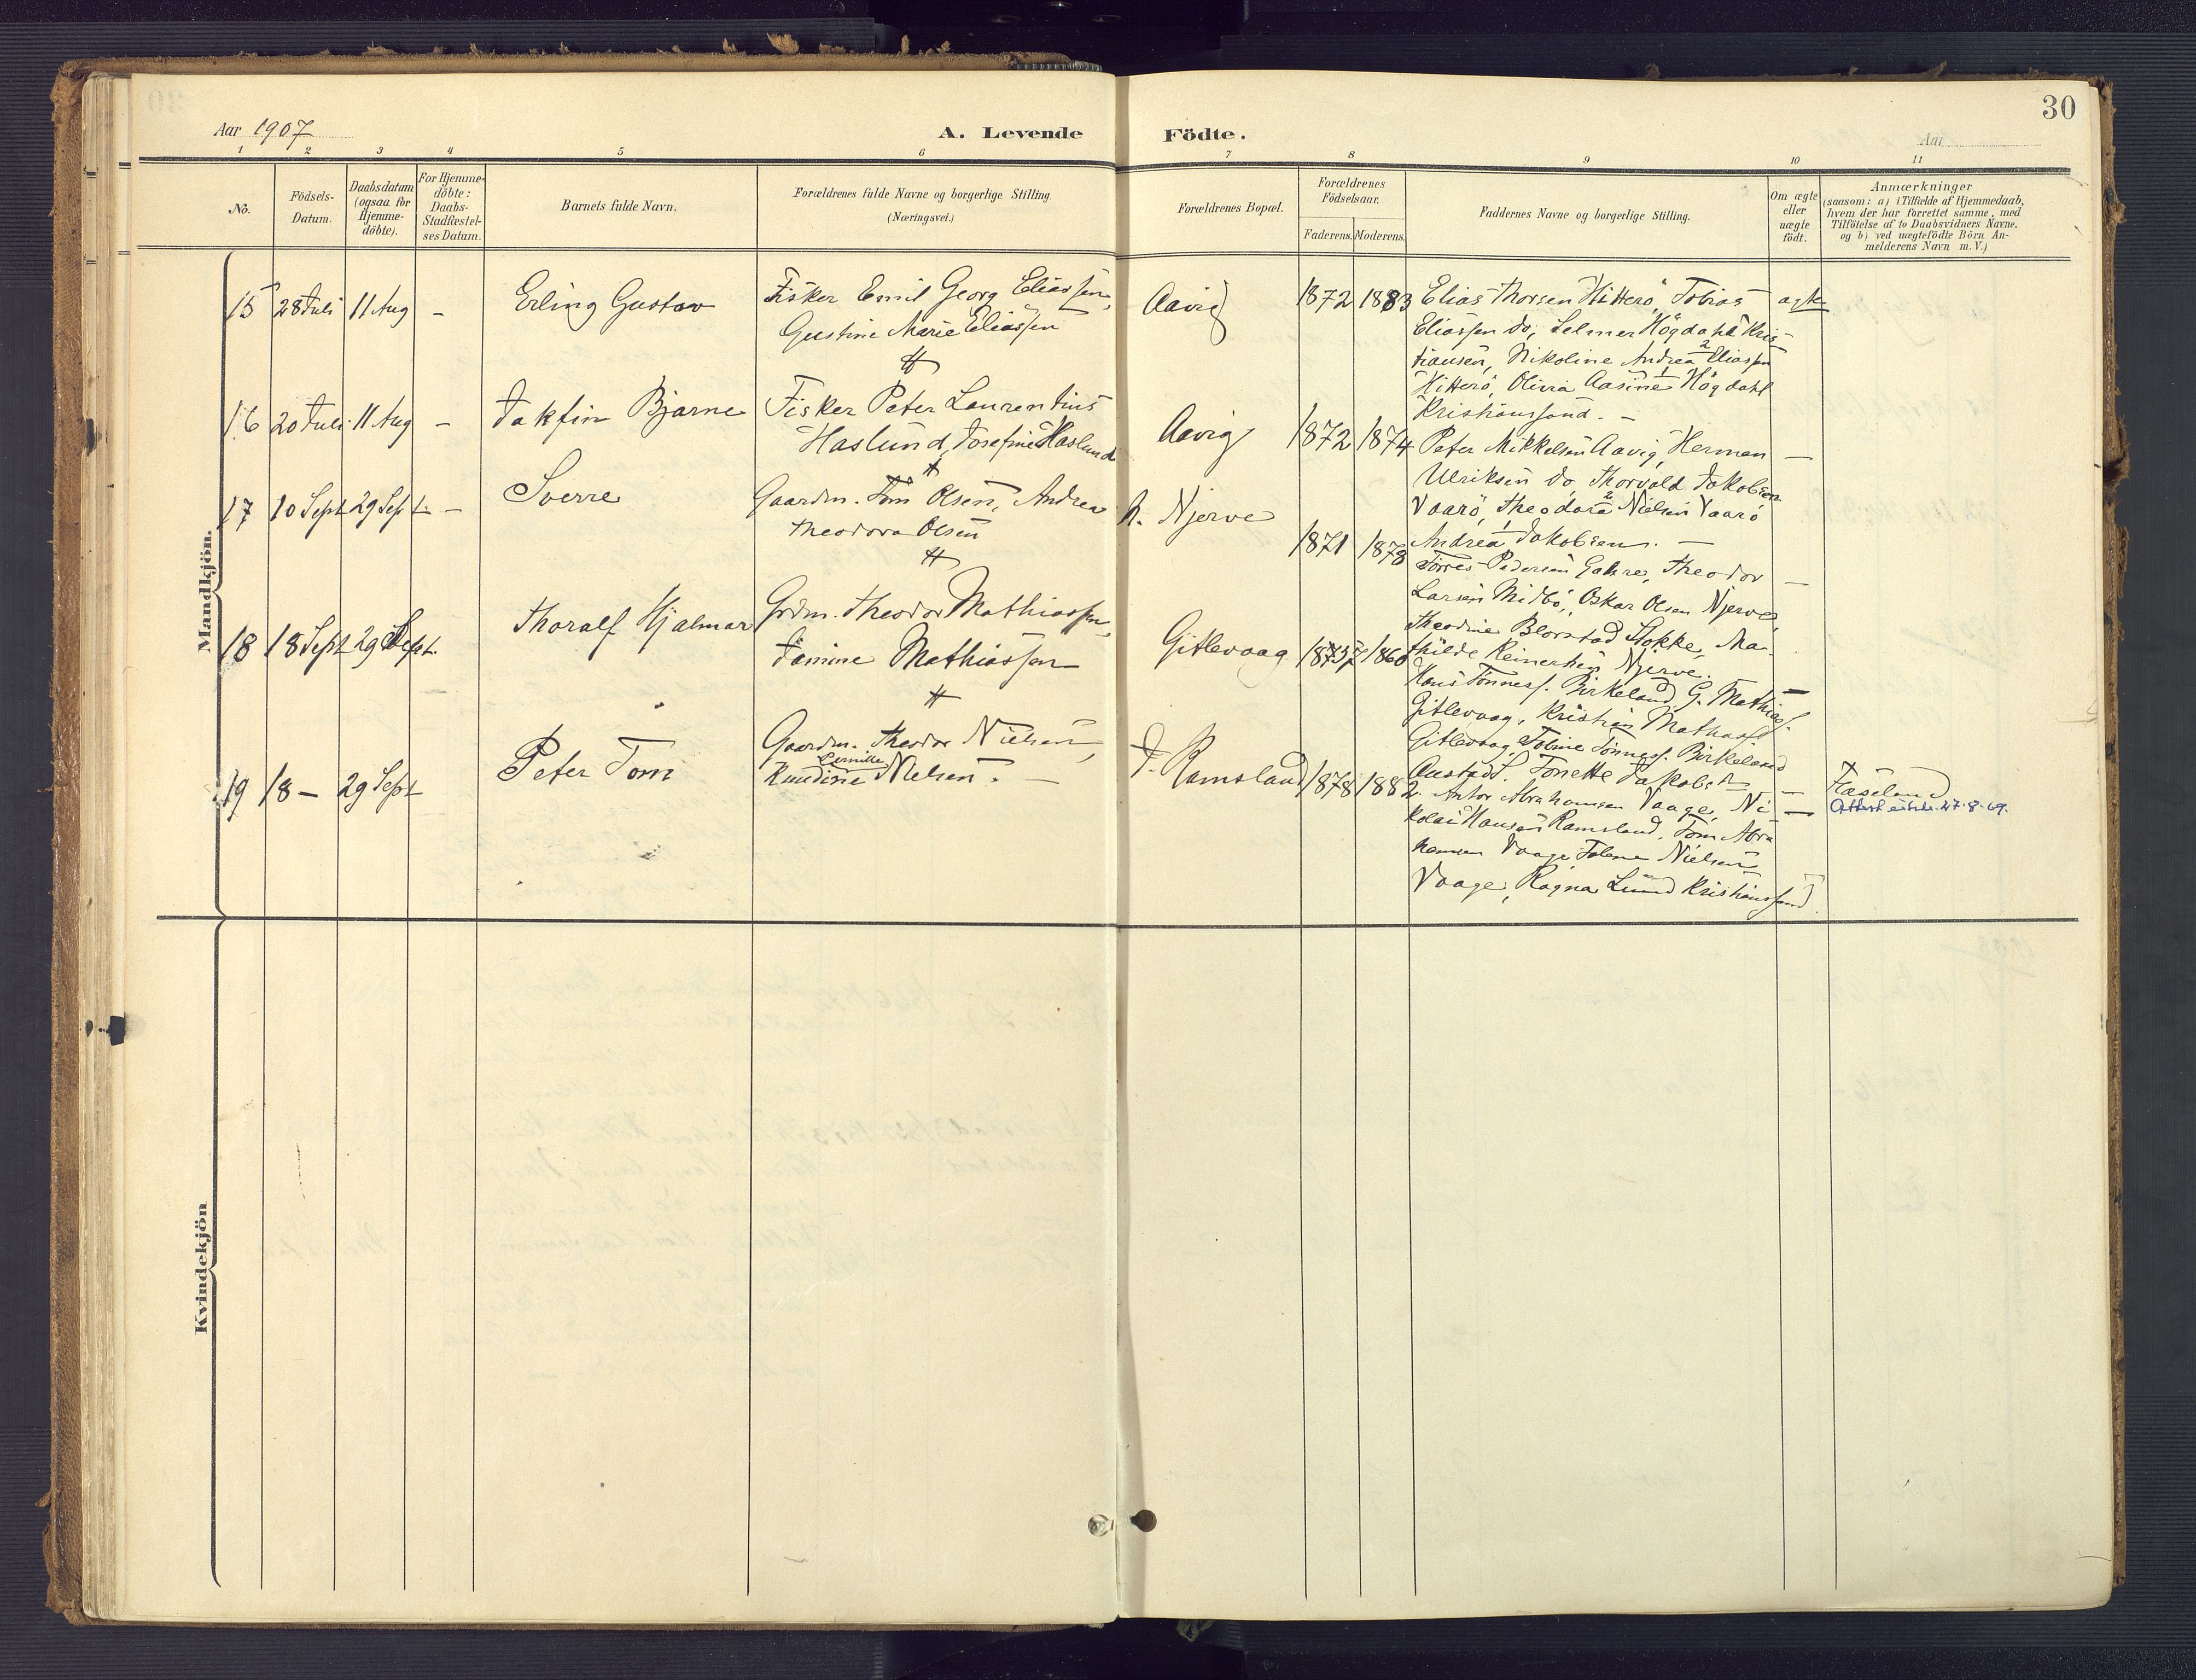 30
Aar 1907
A. Levende Födte.
Aar
1 2 3 4 5 6 7 8 9 10 11
No.
Födsels-
Datum.
Daabsdatum
(ogsaa for
Hjemme-
döbte).
For Hjemme-
döbte:
Daabs-
Stadfæstel-
ses Datum.
Barnets fulde Navn.
Forældrenes fulde Navne og borgerlige Stilling.
(Næringsvei.)
Forældrenes Bopæl.
Forældrenes
Födselsaar.
Faderens. Moderens.
Faddernes Navne og borgerlige Stilling.
Om ægte
eller
uægte
födt.
Anmærkninger
(saasom: a) i Tilfælde af Hjemmedaab,
hvem der har forrettet samme, med
Tilföielse af to Daabsvidners Navne.
og b) ved uægtefödte Börn An-
melderens Navn m. V.)
Mandkjön.
15 28 Juli 11 Aug - Erling Gustav
Fisker Emil Georg Eliassen,
Gustine Marie Eliassen
Aavig 1872 1883
Elias Thorsen Hitterö, Tobias
Eliassen do, Selmer Högdahl Kris-
tiansen, Nikoline Andrea Eliassen
Hitterö, Olivia Aasine Högdahl
Kristianssand. -
ægte
16 20 Juli 11 Aug - Jakfin Bjarne
Fisker Peter Laurentius
Haslund, Josefine Haslund
Aavig 1872 1874
Peter Mikkelsen Aavig, Herman
Ulriksen do, Thorvald Jakobsen
Vaarö, Theodora Nielsen Vaarö
Andrea Jakobsen. -
-
17 10 Sept 29 Sept. - Sverre
Gaardm. Tom Olsen, Andrea
Theodora Olsen
N. Njerve
1871 1878
Torres Pedersen Gahre, Theodor
Larsen Midbö, Oskar Olsen Njerve,
Theodine Stokke, Ma-
thilde Reinertsen Njerve.
-
18 18 Sept 29 Sept. Thoralf Hjalmar
Grdm. Theodor Mathiassen,
Jamine Mathiassen
Gitlevaag 1860
Hans Tönness. Birkeland, G. Mathiass.
Gitlevaag, Kristian Mathiass
Gitlevaag, Tobine Tönness. Birkeland
Tonette Jakobs
-
19 18 - 29 Sept Peter Tom
Gaardm. Theodor Nielsen,
Pernille
Nielsen. -
J. Ramsland 1878 1882
Antor Abrahamsen Vaage, Ni-
kolai Hansen Ramsland, Tom Abra
hamsen Vaage, Tolene Nielsen
Vaage, Ragna Lund Kristianssand
-
Fæseland
Attest utst. 27-8-69.
Kvindekjön